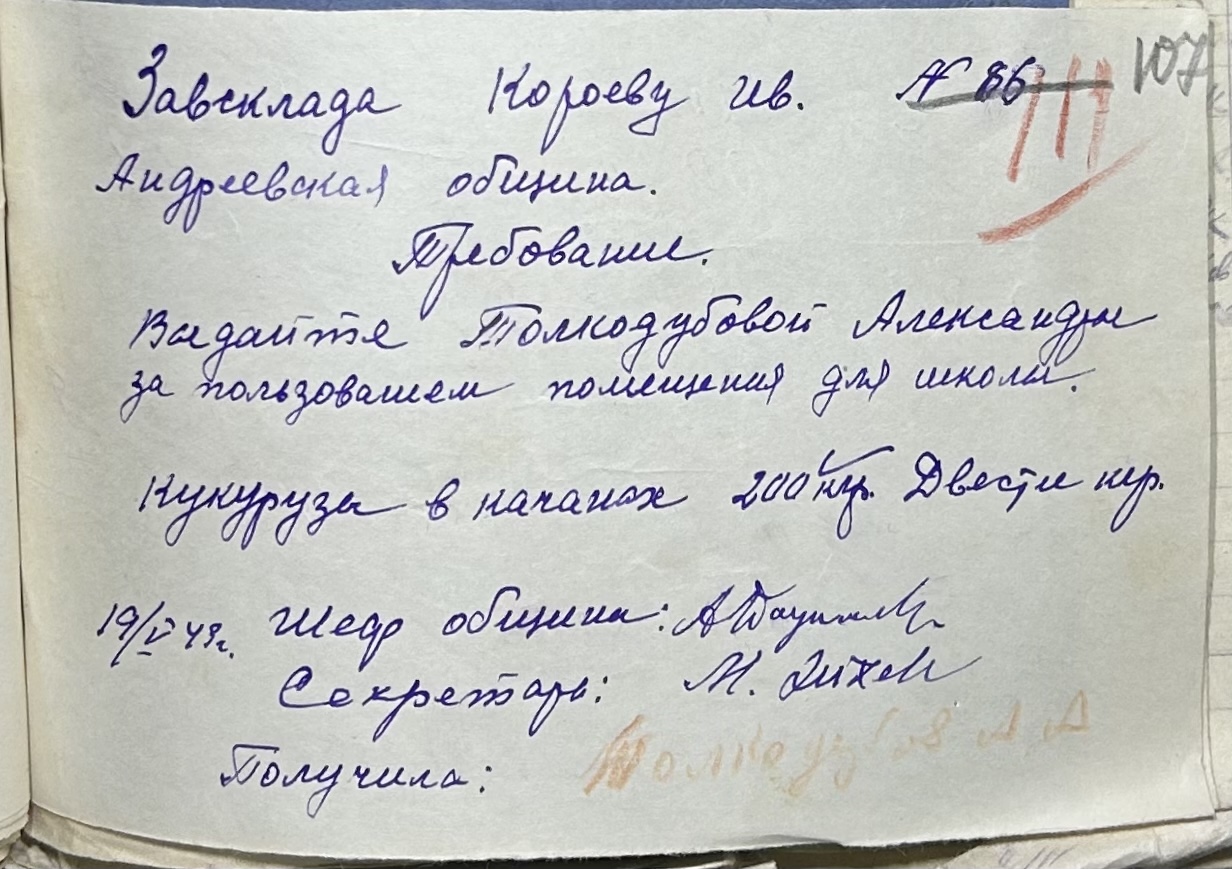 Завсклада Короеву Ив. № 86 107
Андреевская община.
Требование.
Выдайте Толкодубовой Александры
за пользованием помещения для школы.
Кукурузы в качанах 200 кгр. Двести кгр.
19/V 43г. Шеф общины:
Секретарь: М.
Получила: